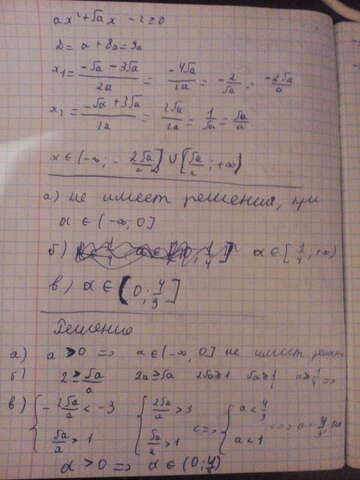 ax² + √a x - 2 ≥ 0
D = a + 8a = 9a
x₁ = (-√a - 3√a)/2a = -4√a/2a = -2/√a = -2√a/a
x₂ = (-√a + 3√a)/2a = 2√a/2a = 1/√a = √a/a
x ∈ (-∞; -2√a/a] ∪ [√a/a; +∞)
а) не имеет решения, при
a ∈ (-∞, 0]
б) a ∈ [1/4; +∞)
в) a ∈ (0; 4/9]
Решение
а) a > 0 => a ∈ (-∞, 0] не имеет решен
б) 2 ≥ √a/a 2a ≥ √a 2√a ≥ 1 √a ≥ 1/2 a ≥ 1/4 =>
в) { -2√a/a < -3 { 2√a/a > 3 { a < 4/9
√a/a > 1 √a/a > 1 <=> a < 1
a > 0 => a ∈ (0; 4/9)